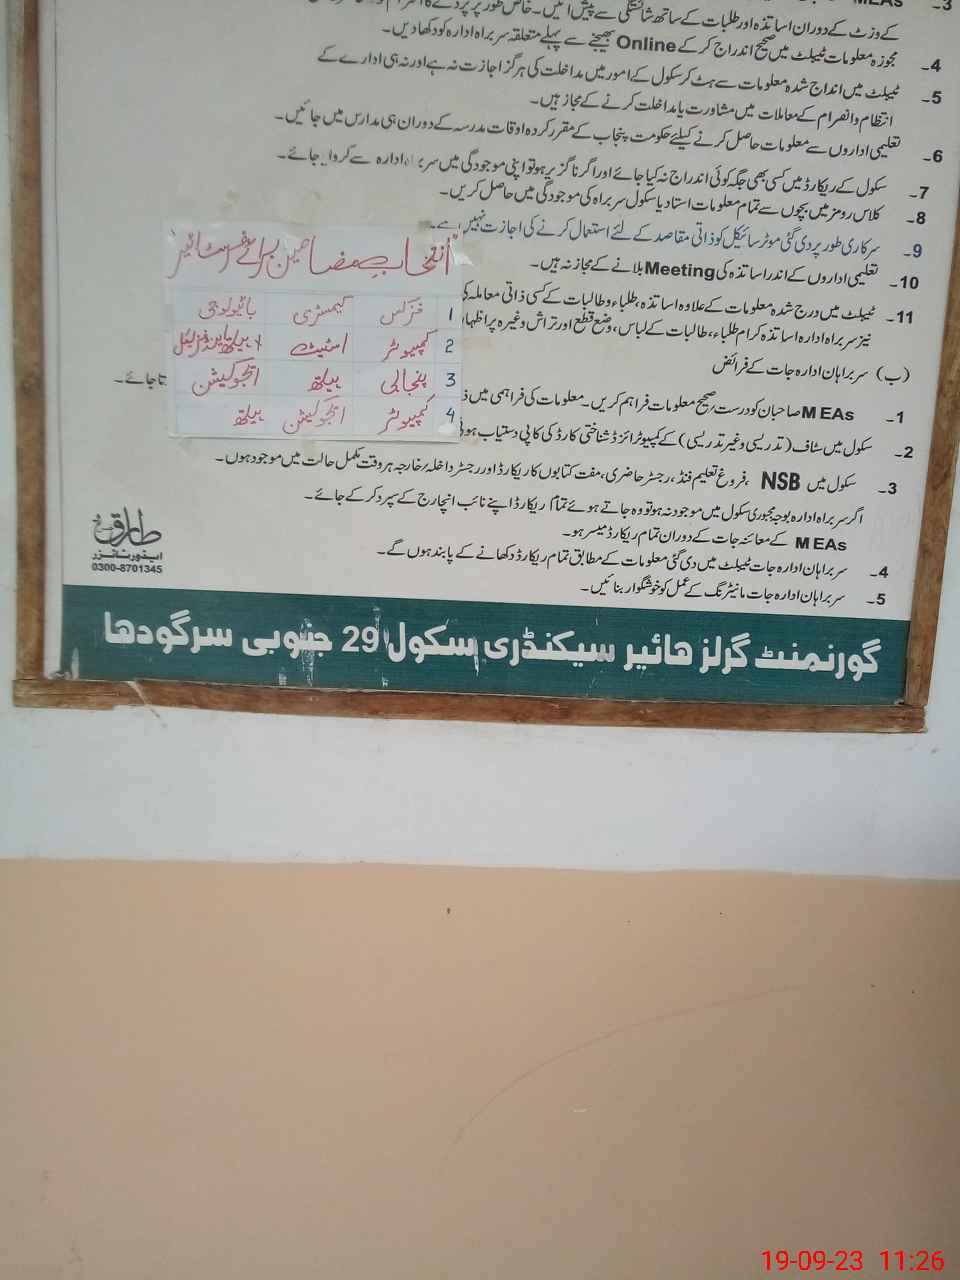 3- MEAs
کے وزٹ کے دوران اساتذہ اور طلبات کے ساتھ شائستگی سے پیش آئیں۔ خاص طور پر پردے کا
4- مجوزہ معلومات ٹیبلٹ میں صحیح اندراج کر کے Online بھیجنے سے پہلے متعلقہ سربراہ ادارہ کو دکھادیں۔
5- ٹیبلٹ میں انداج شدہ معلومات سے ہٹ کر سکول کے امور میں مداخلت کی ہرگز اجازت نہ ہے اور نہ ہی ادارے کے
انتظام وانصرام کے معاملات میں مشاورت یا مداخلت کرنے کے مجاز ہیں۔
6- تعلیمی اداروں سے معلومات حاصل کرنے کیلئے حکومت پنجاب کے مقرر کردہ اوقات مدرسہ کے دوران ہی مدارس میں جائیں۔
7- سکول کے ریکارڈ میں کسی بھی جگہ کوئی اندراج نہ کیا جائے اور اگر ناگزیر ہو تو اپنی موجودگی میں سربراہ ادارہ سے کروایا جائے۔
8- کلاس رومز میں بچوں سے تمام معلومات استاد یا سکول سربراہ کی موجودگی میں حاصل کریں۔
9- سرکاری طور پر دی گئی موٹر سائیکل کو ذاتی مقاصد کے لئے استعمال کرنے کی اجازت نہیں ہے۔
10- تعلیمی اداروں کے اندر اساتذہ کی Meeting بلانے کے مجاز نہ ہیں۔
11- ٹیبلٹ میں درج شدہ معلومات کے علاوہ اساتذہ، طلباء و طالبات کے کسی ذاتی معاملہ کی
نیز سربراہ ادارہ اساتذہ کرام طلباء، طالبات کے لباس، وضع قطع اور تراش وغیرہ پر اظہار
(ب) سربراہان ادارہ جات کے فرائض
1- MEAs صاحبان کو درست صحیح معلومات فراہم کریں۔ معلومات کی فراہمی میں
تا جائے۔
2- سکول میں سٹاف (تدریسی وغیر تدریسی) کے کمپیوٹرائزڈ شناختی کارڈ کی کاپی دستیاب ہو
3- سکول میں NSB ، فروغ تعلیم فنڈ، رجسٹر حاضری، مفت کتابوں کا ریکارڈ اور رجسٹر داخلہ خارجہ ہر وقت مکمل حالت میں موجود ہوں۔
اگر سربراہ ادارہ بوجہ مجبوری سکول میں موجود نہ ہو تو وہ جاتے ہوئے تمام ریکارڈ اپنے نائب انچارج کے سپرد کر کے جائے۔
MEAs کے معائنہ جات کے دوران تمام ریکارڈ میسر ہو۔
4- سربراہان ادارہ جات ٹیبلٹ میں دی گئی معلومات کے مطابق تمام ریکارڈ دکھانے کے پابند ہوں گے۔
5- سربراہان ادارہ جات مانیٹرنگ کے عمل کو خوشگوار بنائیں۔
"انتخاب مضامین برائے فرسٹ ائیر"
1 فزکس کیمسٹری بائیولوجی
2 کمپیوٹر اسٹیٹ ہیلتھ اینڈ فزیکل
3 پنجابی ہیلتھ ایجوکیشن
4 کمپیوٹر ایجوکیشن ہیلتھ
طارق
ایڈورٹائزر
0300-8701345
گورنمنٹ گرلز ھائیر سیکنڈری سکول 29 جنوبی سرگودھا
19-09-23 11:26